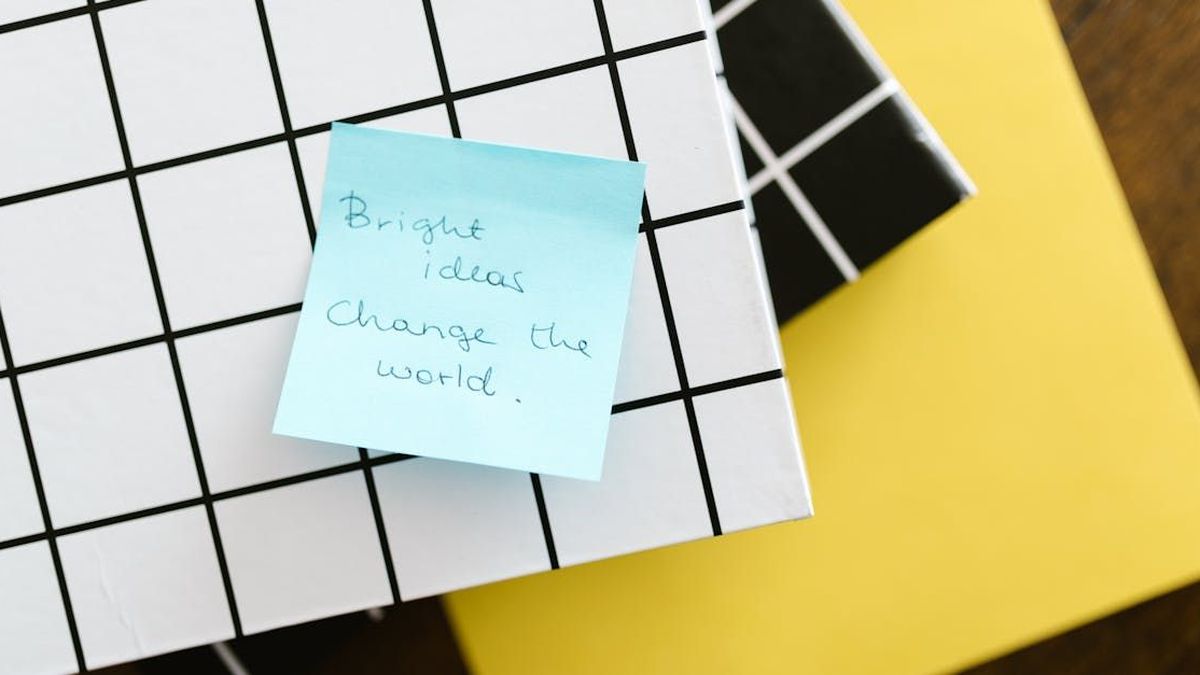 Bright
ideas
Change the
world.